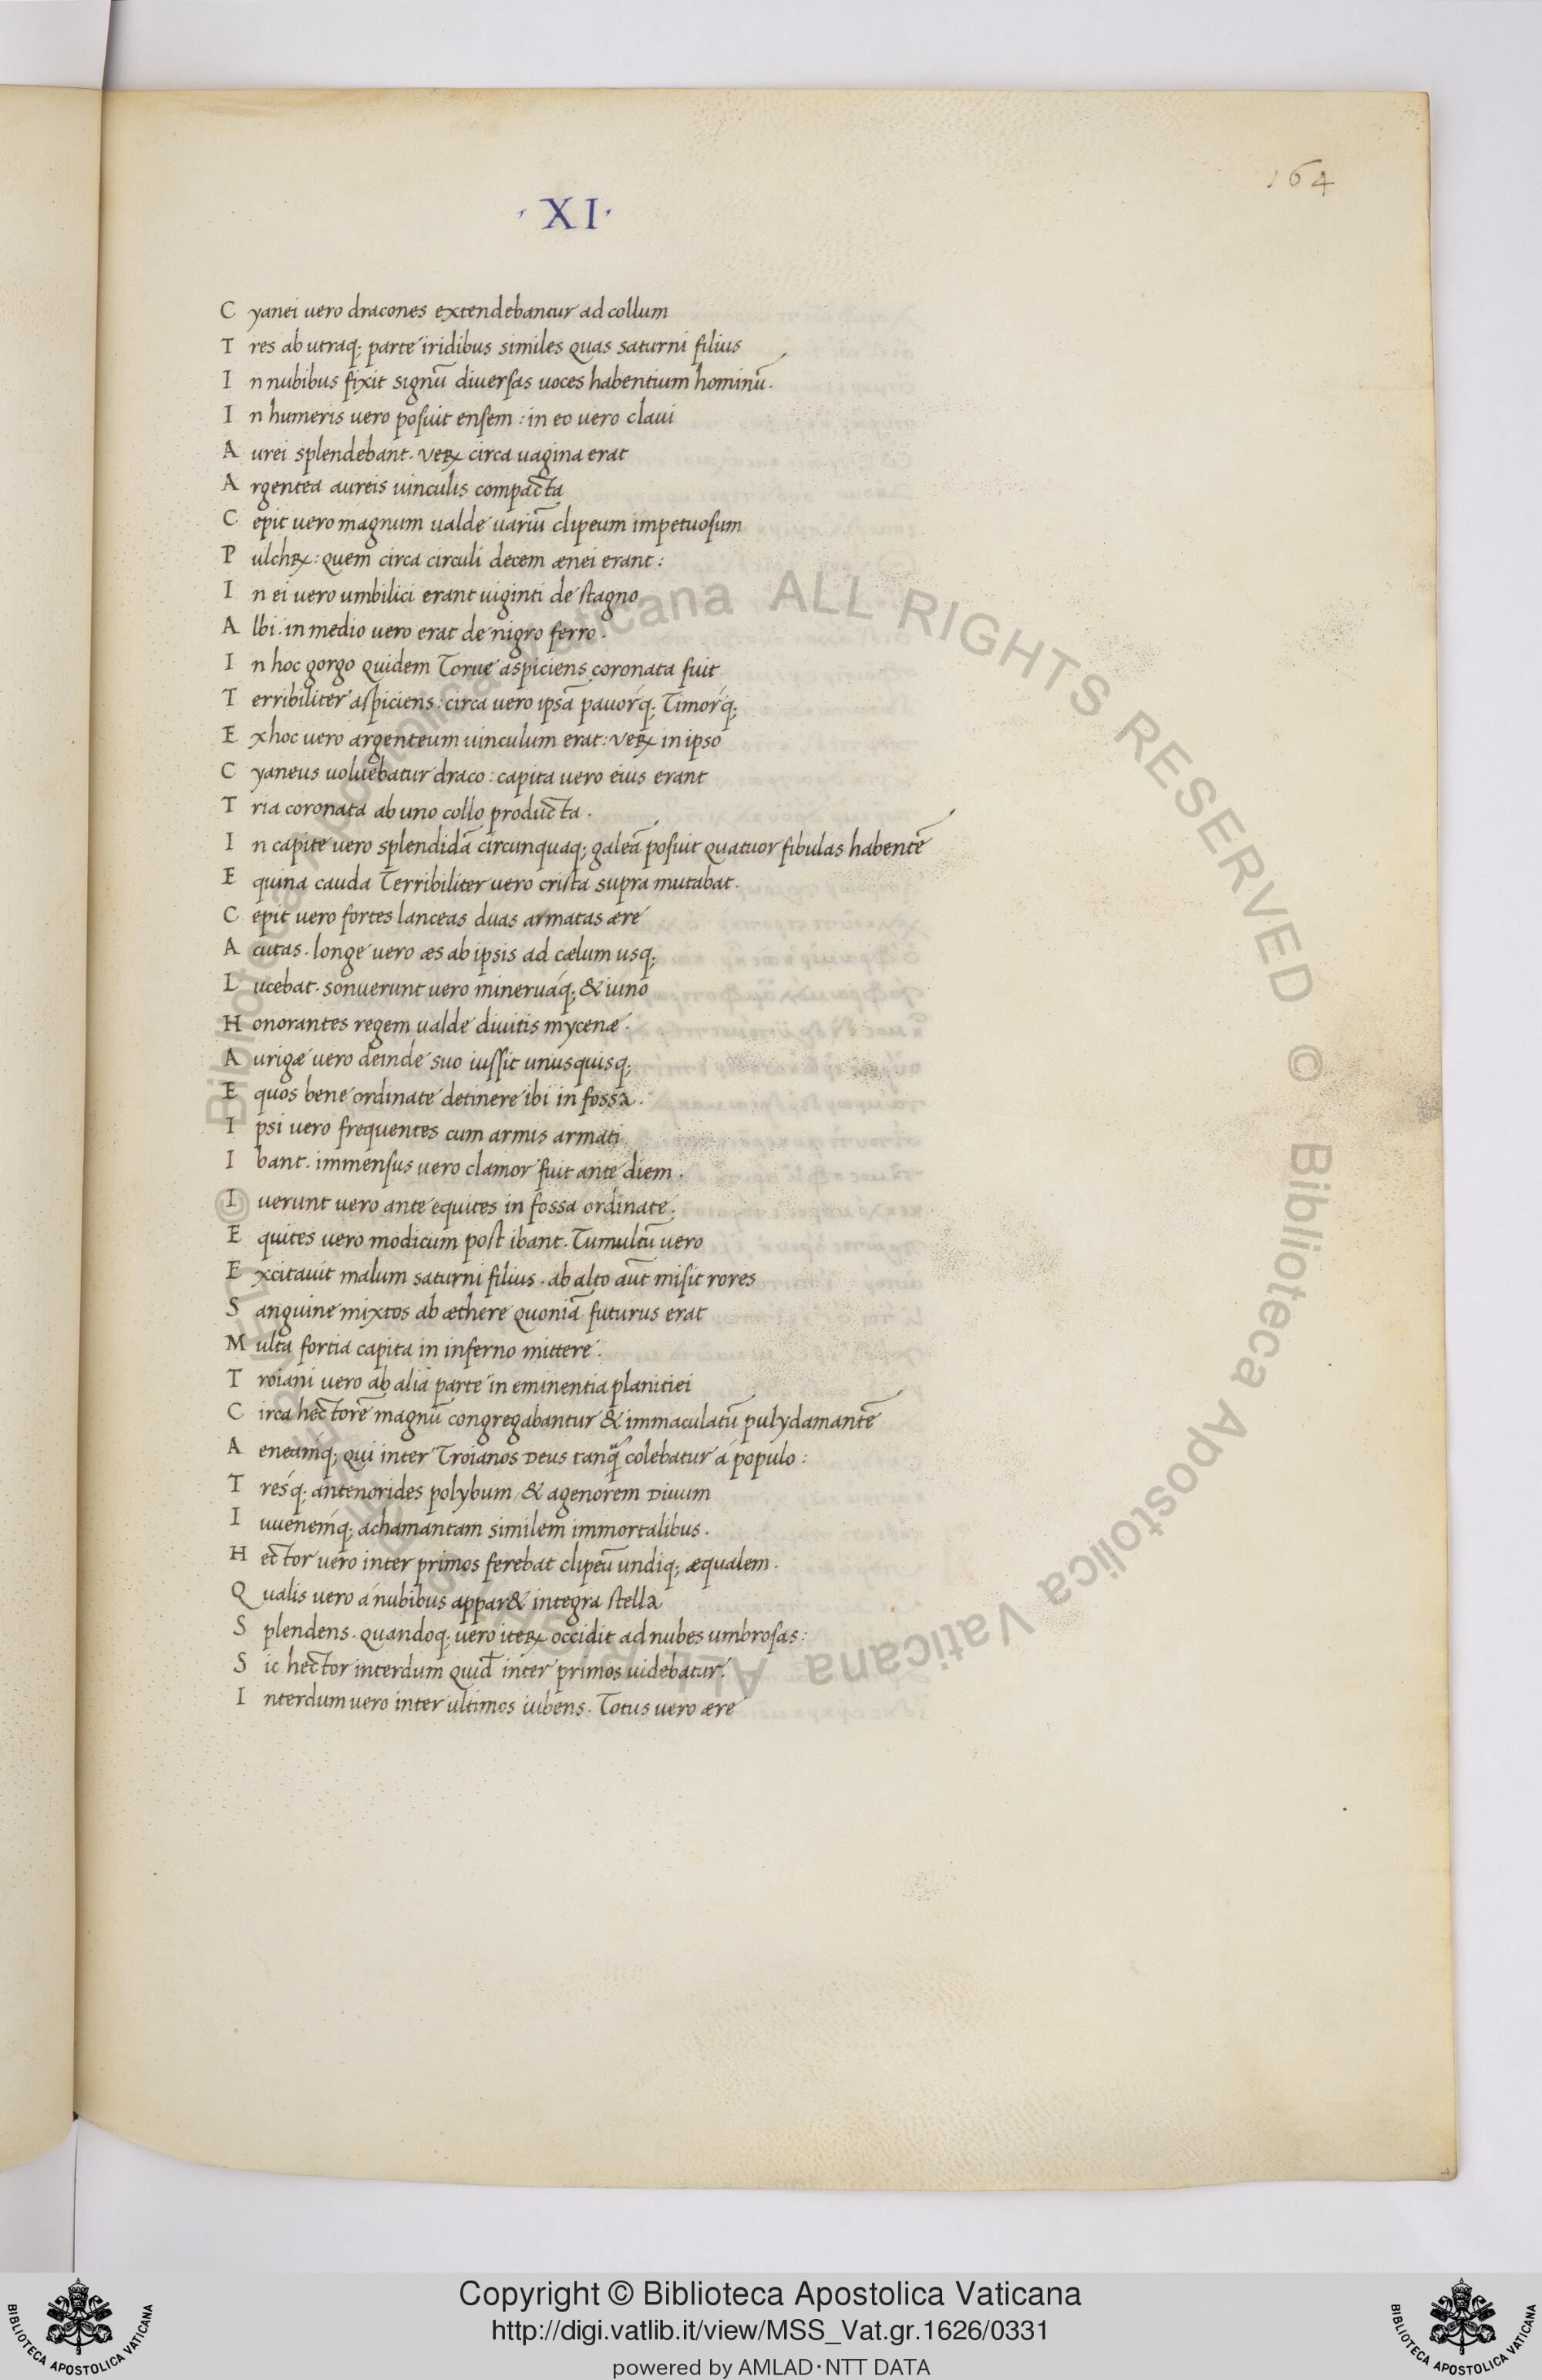 164
· XI ·
C yanei uero dracones extendebantur ad collum
T res ab utraq; parte iridibus similes quas saturni filius
I n nubibus fixit signū diuersas uoces habentium hominū.
I n humeris uero posuit ensem : in eo uero claui
A urei splendebant. veꝝ circa uagina erat
A rgentea aureis uinculis compacta
C epit uero magnum ualde uariū clipeum impetuosum
P ulchꝝ : quem circa circuli decem ænei erant :
I n ei uero umbilici erant uiginti de stagno
A lbi. in medio uero erat de nigro ferro.
I n hoc gorgo quidem Torue aspiciens coronata fuit
T erribiliter aspiciens : circa uero ipsā pauorq́; Timorq́;
E x hoc uero argenteum uinculum erat : veꝝ in ipso
C yaneus uoluebatur draco : capita uero eius erant
T ria coronata ab uno collo producta.
I n capite uero splendidā circunquaq; galeā posuit quatuor fibulas habentē
E quina cauda Terribiliter uero crista supra mutabat.
C epit uero fortes lanceas duas armatas ære
A cutas. longe uero æs ab ipsis ad cælum usq;
L ucebat. sonuerunt uero mineruáq; & iuno
H onorantes regem ualde diuitis mycenæ.
A urigæ uero deinde suo iussit unusquisq;
E quos bene ordinate detinere ibi in fossa.
I psi uero frequentes cum armis armati
I bant. immensus uero clamor fuit ante diem.
I uerunt uero ante equites in fossa ordinate.
E quites uero modicum post ibant. Tumultū uero
E xcitauit malum saturni filius. ab alto aūt misit rores
S anguine mixtos ab æthere quoniā futurus erat
M ulta fortia capita in inferno mittere.
T roiani uero ab alia parte in eminentia planitiei
C irca hectorē magnū congregabantur & immaculatū pulydamantē
A eneamq; qui inter Troianos Deus tanq̃ colebatur á populo :
T resq́; antenorides polybum & agenorem Diuum
I uuenemq́; achamantam similem immortalibus.
H ector uero inter primos ferebat clipeū undiq; æqualem.
Q ualis uero á nubibus appar& integra stella
S plendens. quandoq; uero iteꝝ occidit ad nubes umbrosas :
S ic hector interdum quid̄ inter primos uidebatur.
I nterdum uero inter ultimos iubens. Totus uero ære
© Biblioteca Apostolica Vaticana ALL RIGHTS RESERVED © Biblioteca Apostolica Vaticana ALL RIGHTS RESERVED
Copyright © Biblioteca Apostolica Vaticana
http://digi.vatlib.it/view/MSS_Vat.gr.1626/0331
powered by AMLAD·NTT DATA
BIBLIOTECA APOSTOLICA VATICANA
BIBLIOTECA APOSTOLICA VATICANA